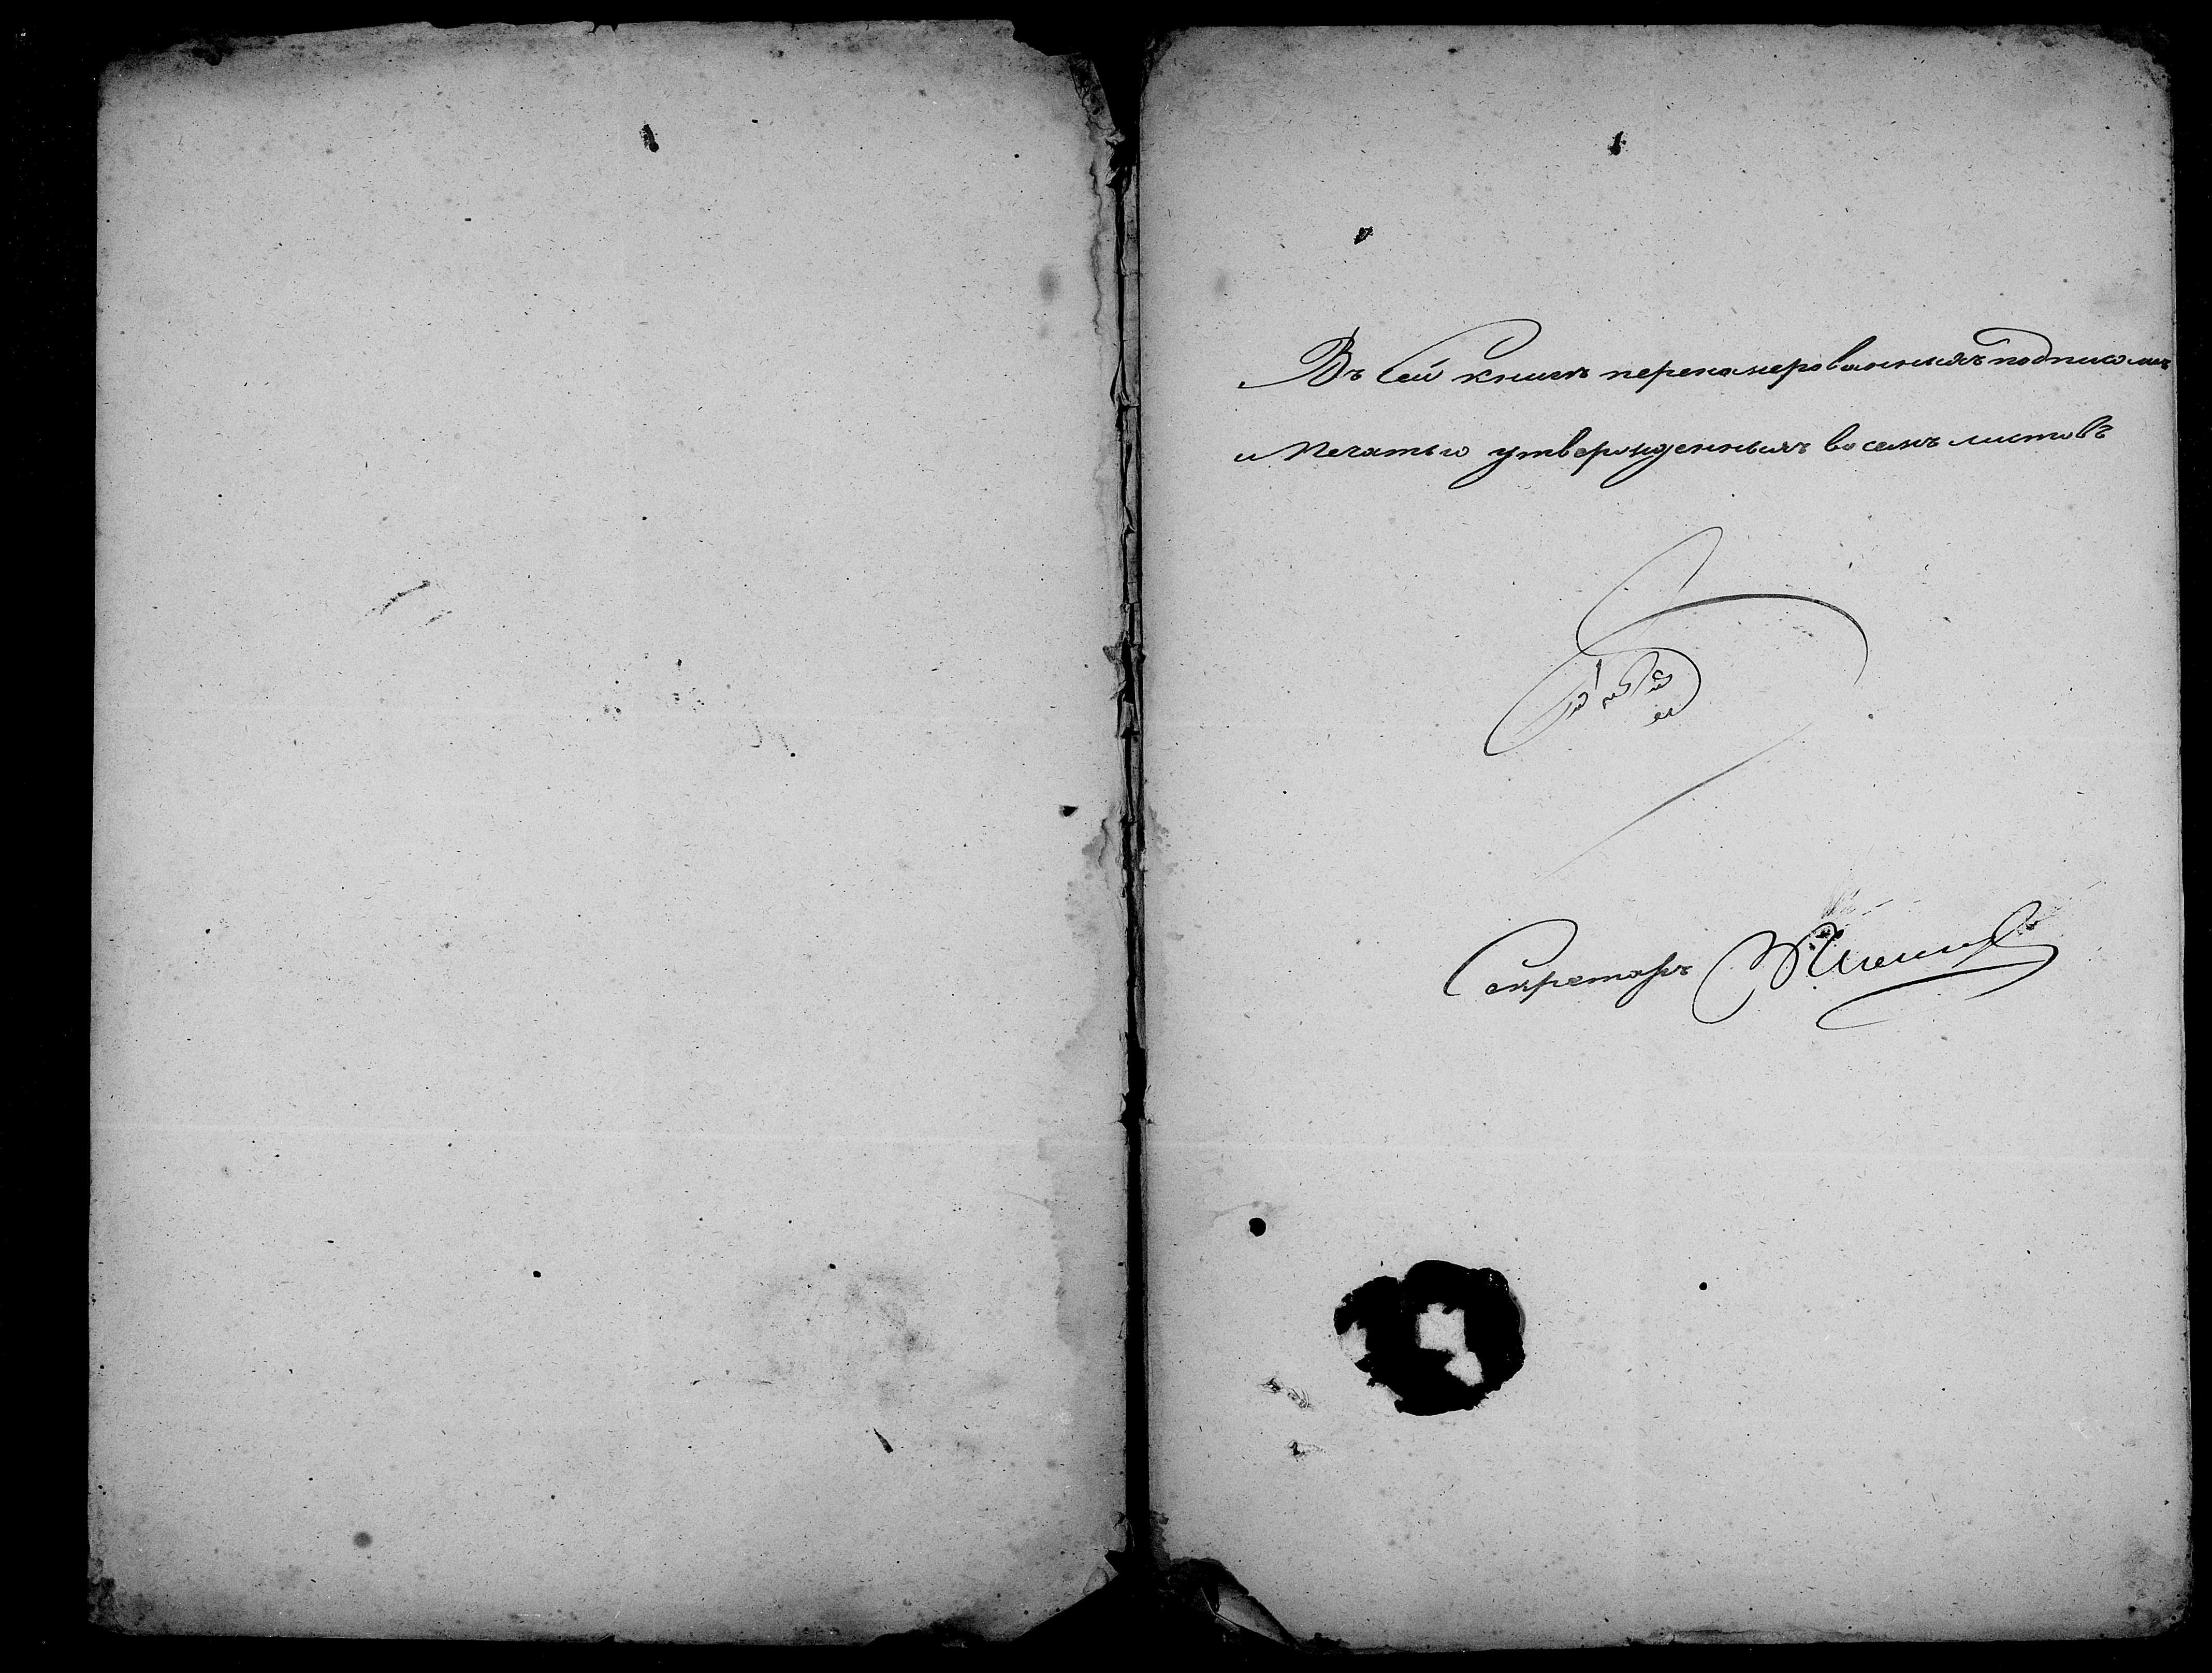 Въ сей книгѣ перенамерованныхъ подписомъ
и печатью утвержденныхъ восемь листовъ
Секретарь